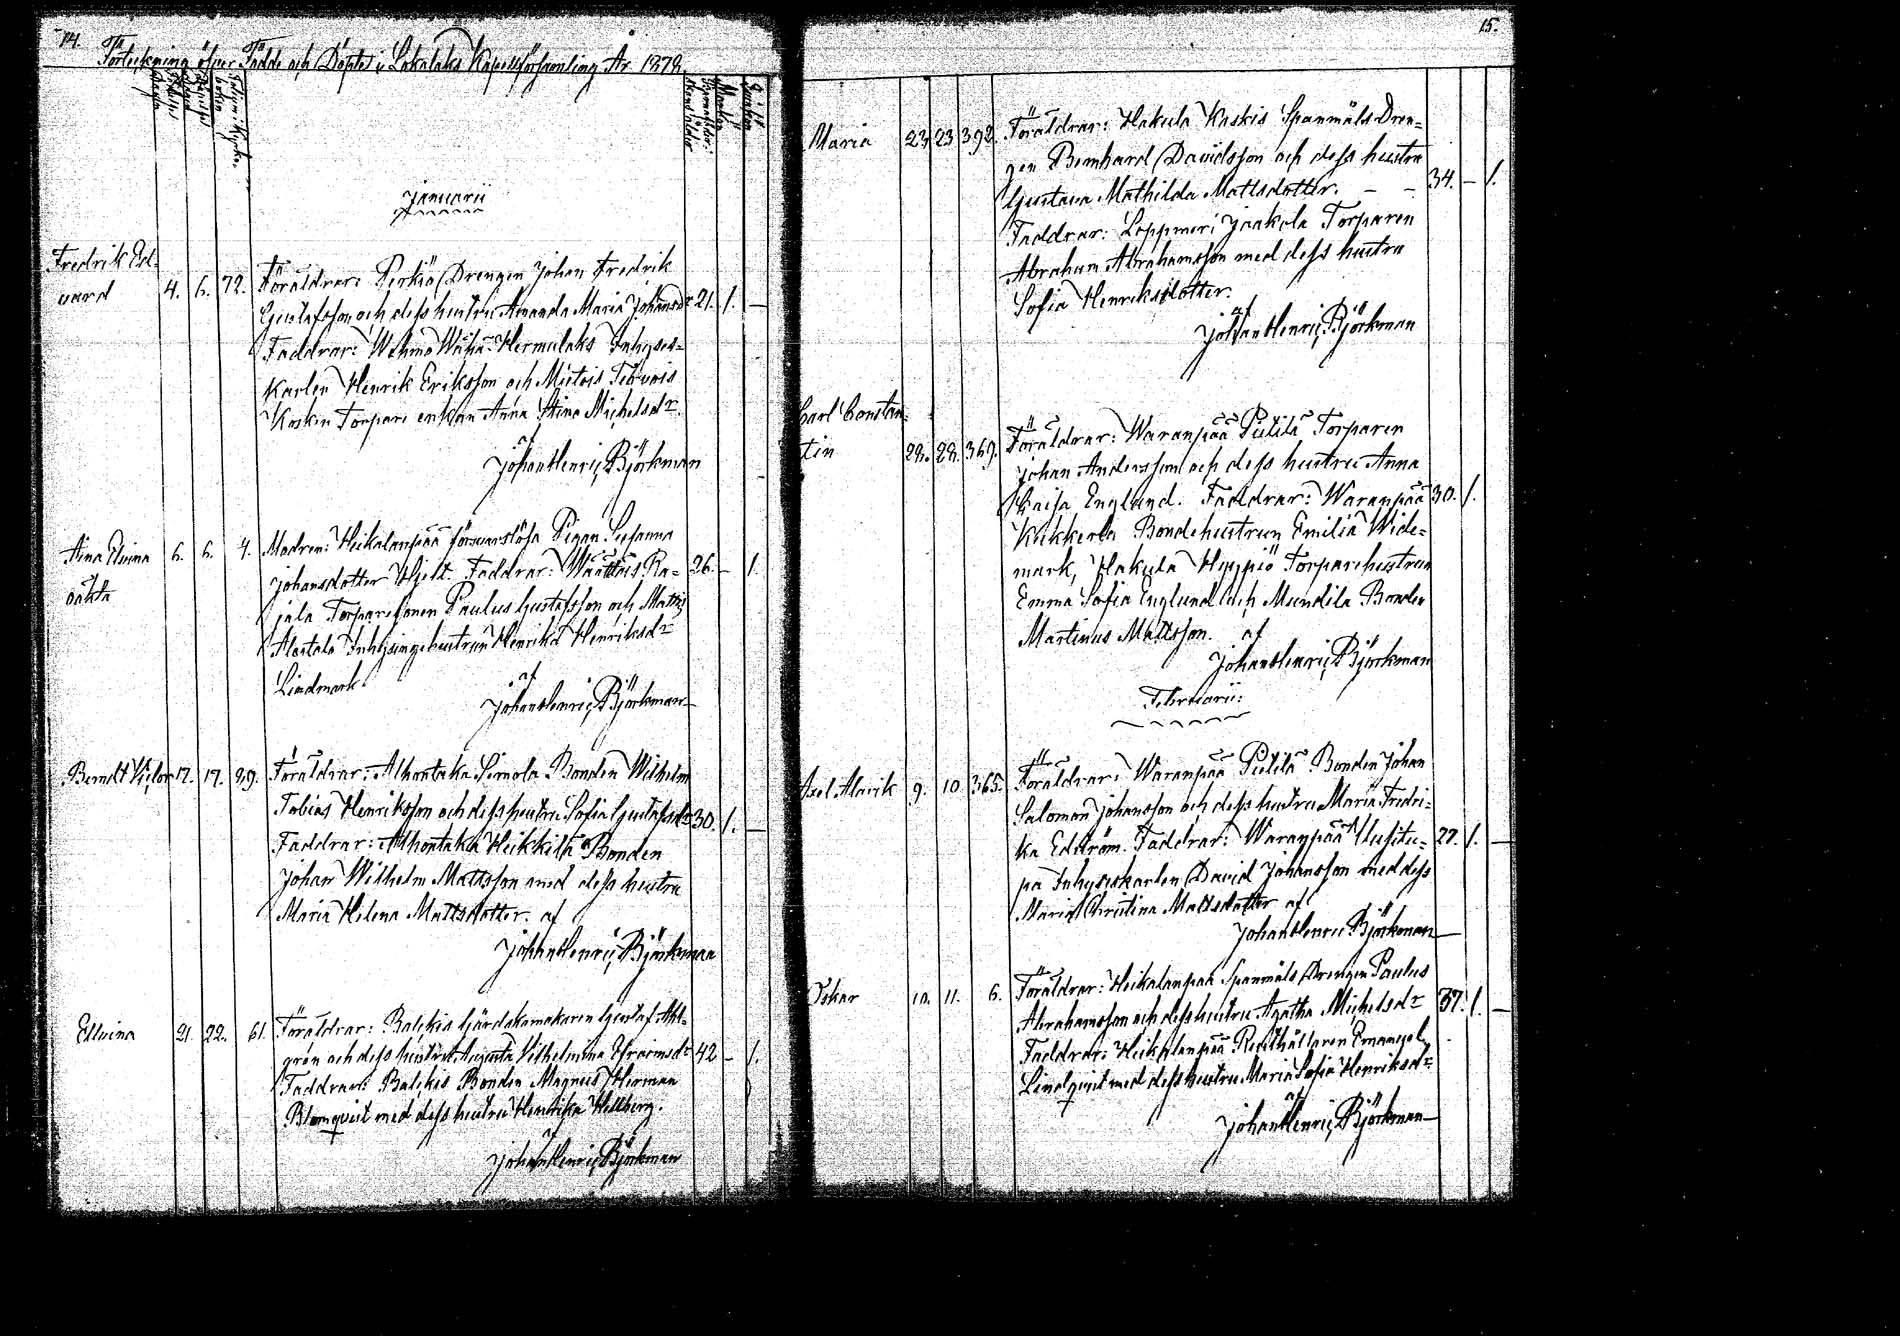 14.
Förteckning öfver Födde och Döpte i Lokalaks Kapellförsamling År 1878.
Januarii
Fredrik Ed-
vard 4. 6. 72. Föräldrar: Perkiö Drengen Johan Fredrik
Gustafsson och dess hustru Amanda Maria Johansdr 21. 1. —
Faddrar: Wehmo Hermulaks Inhyses-
karlen Henrik Eriksson och
Koskis Torpare enkan Anna Stina Michelsdr.
af
Johan Henric Björkman
Aina Elvina 6. 6. 4. Modren: Heikalanpää försvarslösa Pigan Susanna
oäkta Johansdotter Hjelt. Faddrar: Ra- 26. — 1.
jala Torparesonen Paulus Gustafsson och
Alastalo Inhysingehustrun Henrika Henriksdr
Lindmark.
af
Johan Henric Björkman
Berndt Victor 17. 17. 29. Föräldrar: Alhontaka Simola Bonden Wilhelm
Tobias Henriksson och dess hustru Sofia Gustafsdr 30. 1. —
Faddrar: Alhontaka Heikkilä Bonden
Johan Wilhelm Mattsson med dess hustru
Maria Helena Mattsdotter. af
Johan Henric Björkman
Ellvina 21. 22. 61. Föräldrar: Balckis Gärdakamakaren Gustaf Ahl-
grén och dess hustru Augusta Vilhelmina Efraimsdr 42 — 1.
Faddrar: Balckis Bonden Magnus Herman
Blomqvist med dess hustru Hendrika Hellberg.
af
Johan Henric Björkman
15.
Maria 23 23 392. Föräldrar: Hakula Kaskis Spanmåls Dren-
gen Bernhard Davidsson och dess hustru
Gustava Mathilda Mattsdotter. — — 34. — 1.
Faddrar: Loppmeri Jaakola Torparen
Abraham Abrahamsson med dess hustru
Sofia Henriksdotter.
af
Johan Henric Björkman
Carl Constan-
tin 28. 28. 369. Föräldrar: Waranpää Pütilä Torparen
Johan Andersson och dess hustru Anna
Caisa Englund. Faddrar: Waranpää 30. 1.
Kukkerla Bondehustrun Emilia Wide-
mark, Hakula Hyypiö Torparehustrun
Emma Sofia Englund och Mundila Bonden
Martinus Mattsson. af
Johan Henric Björkman
Februarii:
Axel Alarik 9. 10 365. Föräldrar: Waranpää Pütilä Bonden Johan
Salomon Johansson och dess hustru Maria Fredri-
ka Edström. Faddrar: Waranpää Uusitu- 27. 1. —
pa Inhyseskarlen David Johansson med dess
Maria Christina Mattsdotter af
Johan Henric Björkman
Oskar 10. 11. 6. Föräldrar: Heikalanpää Spanmåls Drengen Paulus
Abrahamsson och dess hustru Agatha Michelsdr 37. 1. —
Faddrar: Heikalanpää Rusthållaren Emanuel
Lindqvist med dess hustru Maria Sofia Henriksdr
af
Johan Henric Björkman